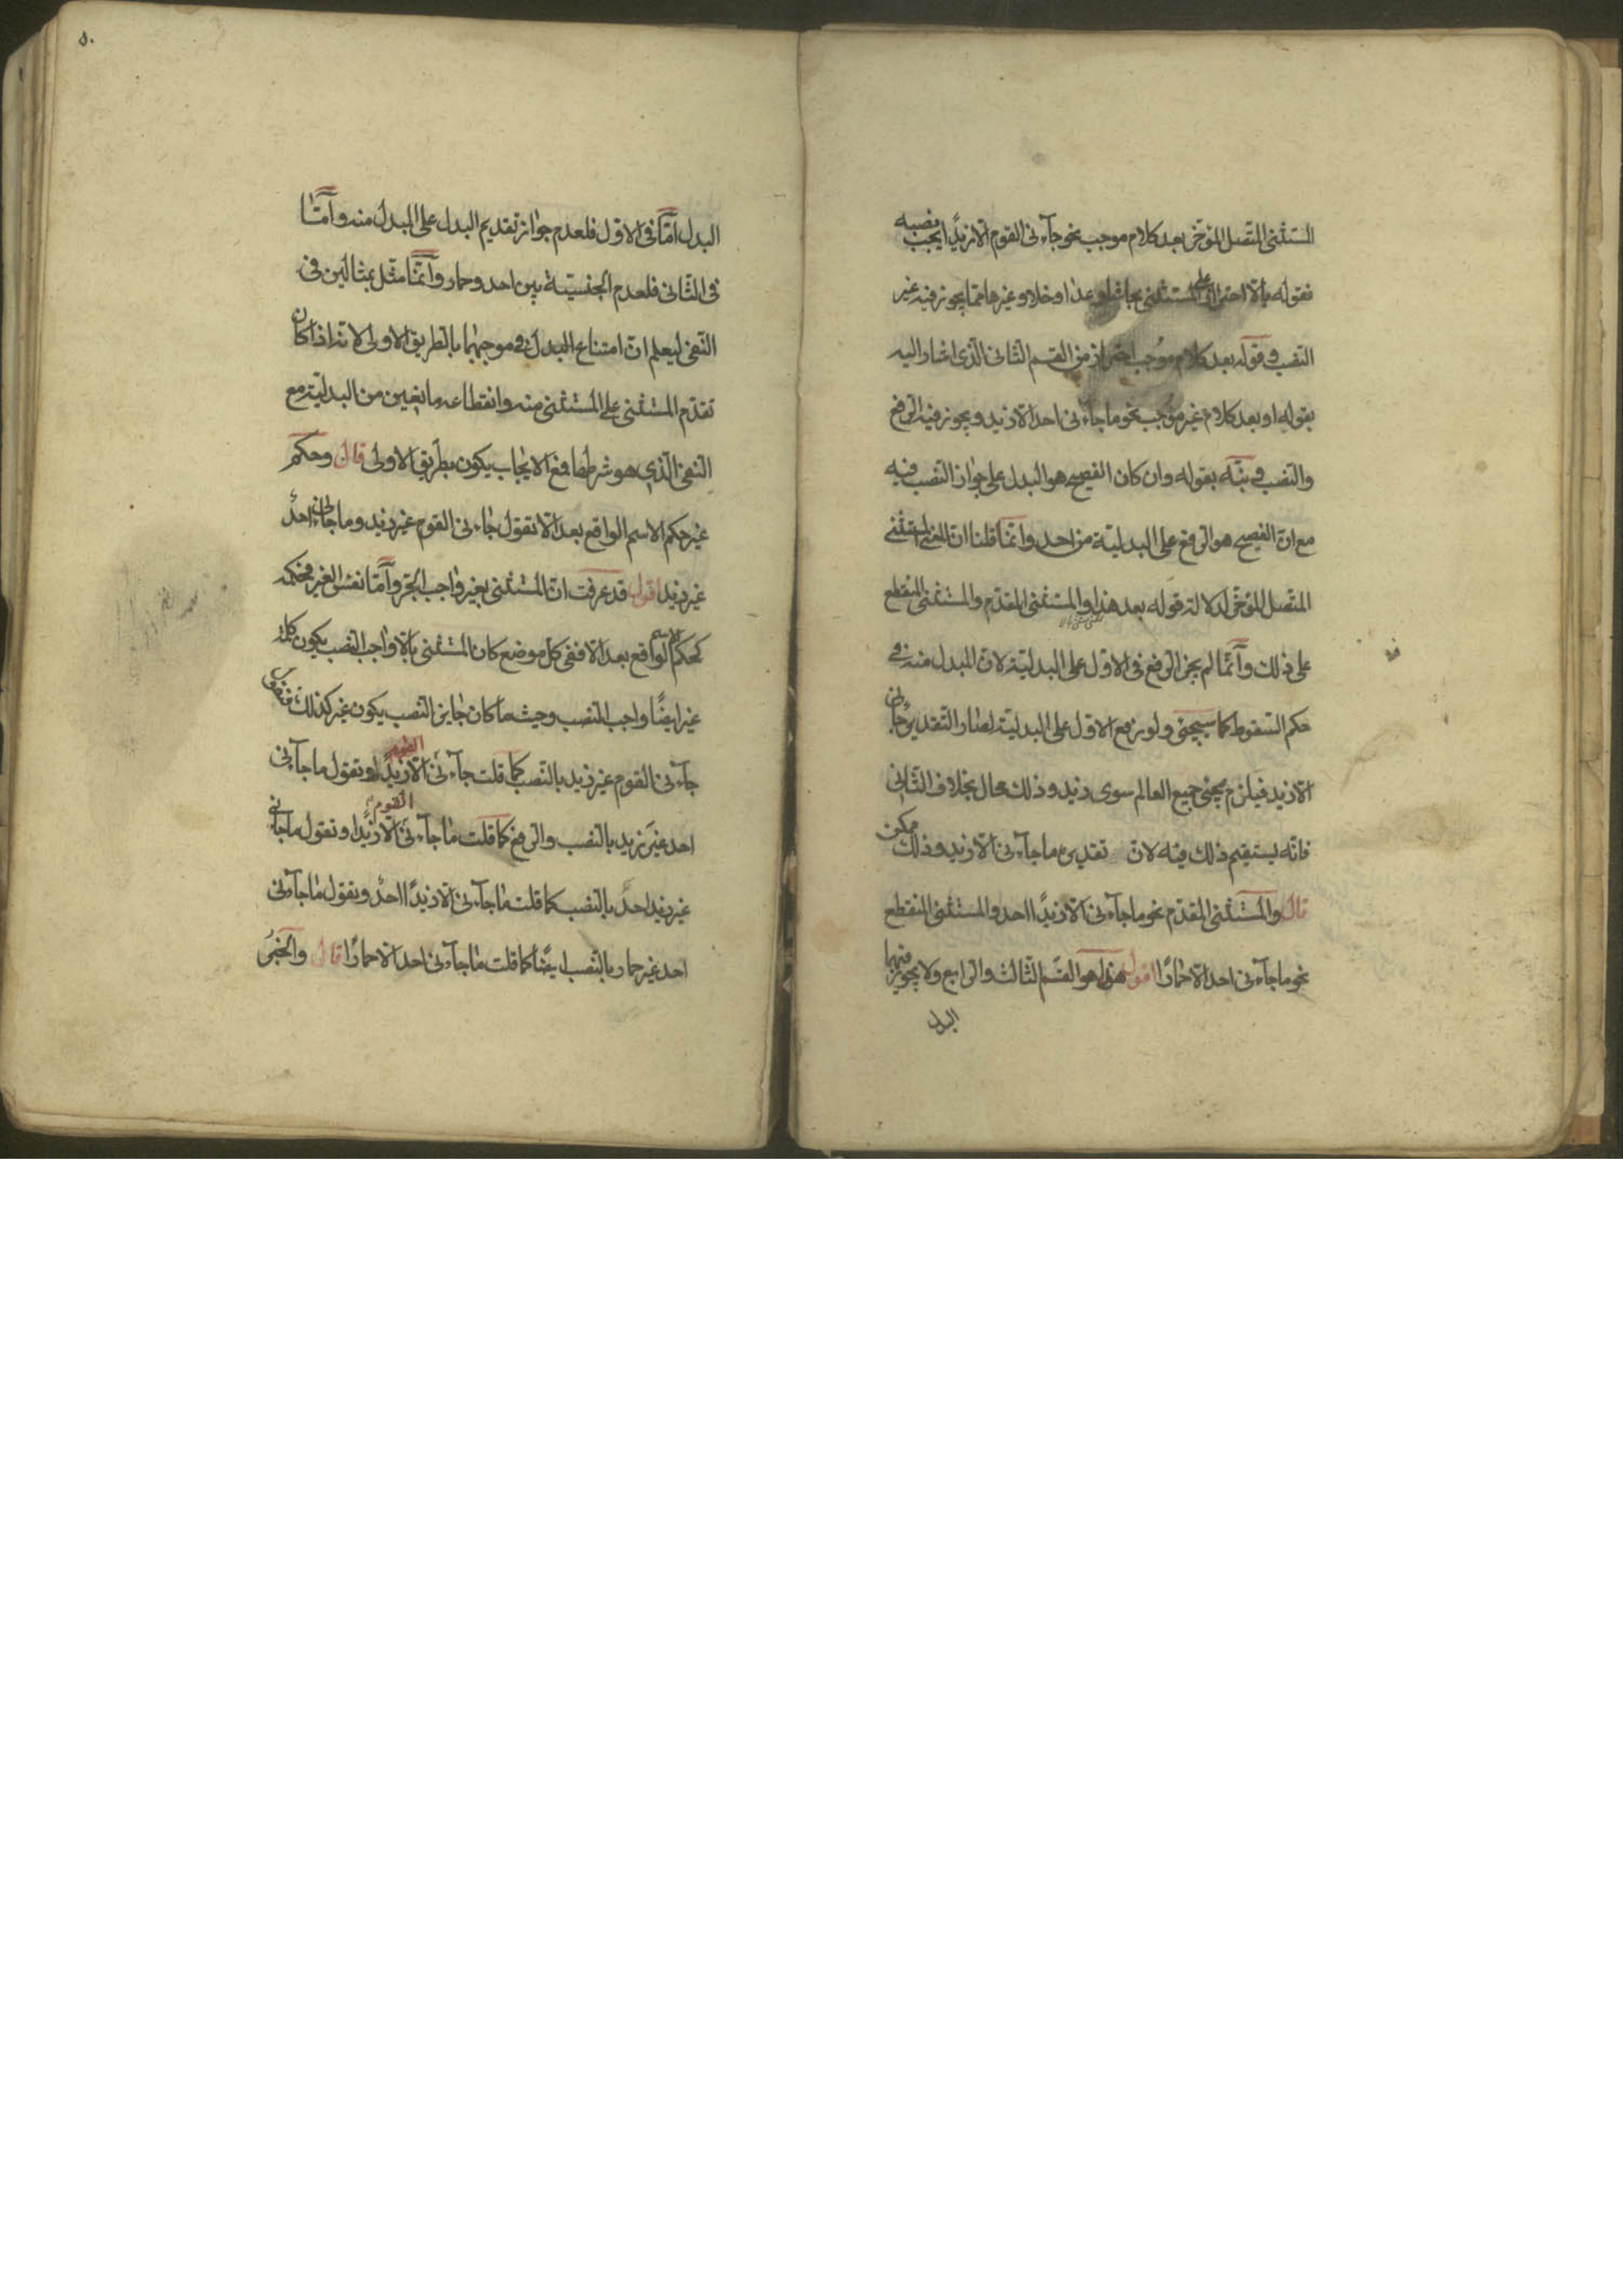 المستثنى المتصل المؤخر بعد كلام موجب نحو جاءنى القوم الا زيدا يجب نصبه
فقوله بالا احتراز عن المستثنى بحاشا وعدا وخلا وغيرها مما يجوز فيه غير
النصب وقوله بعد كلام موجب احتراز من القسم الثانى الذى اشار اليه
بقوله او بعد كلام غير موجب نحو ما جاءنى احد الا زيد ويجوز فيه الرفع
والنصب ونبّه بقوله وان كان الفصيح هو البدل على جواز النصب فيه
مع ان الفصيح هو الرفع على البدلية من احد وانما قلنا ان المستثنى
المتصل المؤخر لدلالة قوله بعد هذا والمستثنى المقدم والمستثنى المنقطع
على ذلك وانما لم يجز الرفع فى الاول على البدلية لان المبدل منه فى
حكم السقوط كما سيجئ ولو رفع الاول على البدلية لصار التقدير جاءنى
الا زيد فيلزم مجئ جميع العالم سوى زيد وذلك محال بخلاف الثانى
فانه يستقيم ذلك فيه لان تقديره ما جاءنى الا زيد وذلك ممكن
قال والمستثنى المقدم نحو ما جاءنى الا زيدا احد والمستثنى المنقطع
نحو ما جاءنى احد الا حمارا اقول هذا هو القسم الثالث والرابع ولا يجوز فيهما
البدل
٥٠
البدل امّا فى الاول فلعدم جواز تقديم البدل على المبدل منه وامّا
فى الثانى فلعدم الجنسية بين احد وحمار وانّما مثل بمثالين فى
النفى ليعلم ان امتناع البدل فى موجبهما بالطريق الاولى لانه اذا كان
تقدّم المستثنى على المستثنى منه وانقطاعه مانعين من البدلية مع
النفى الذى هو شرطها فمع الايجاب يكون بطريق الاولى قال وحكم
غير حكم الاسم الواقع بعد الا تقول جاءنى القوم غير زيد وما جاءنى احد
غير زيد اقول قد عرفت ان المستثنى بغير واجب الجر وامّا نفس الغير فحكمه
كحكم الاسم الواقع بعد الا ففى كل موضع كان المستثنى بالا واجب النصب يكون كلمة
غير ايضا واجب النصب وحيث ما كان جايز النصب يكون غير كذلك فتقول
جاءنى القوم غير زيد بالنصب كما قلت جاءنى القوم الا زيدا وتقول ما جاءنى
احد غير زيد بالنصب والرفع كما قلت ما جاءنى القوم الا زيدا وتقول ما جاءنى
غير زيد احد بالنصب كما قلت ما جاءنى الا زيدا احد وتقول ما جاءنى
احد غير حمار بالنصب ايضا كما قلت ما جاءنى احد الا حمارا قال والخبر